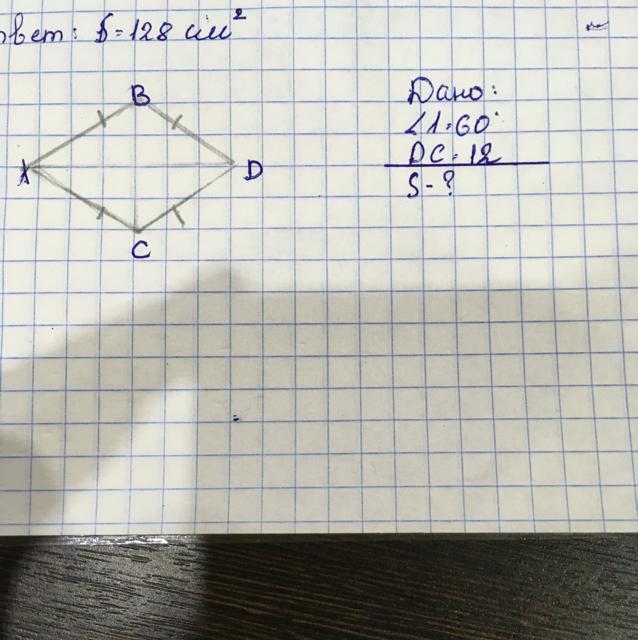 твет: S=128 см²
B
A
D
C
Дано:
∠1=60°
DC=12
S-?